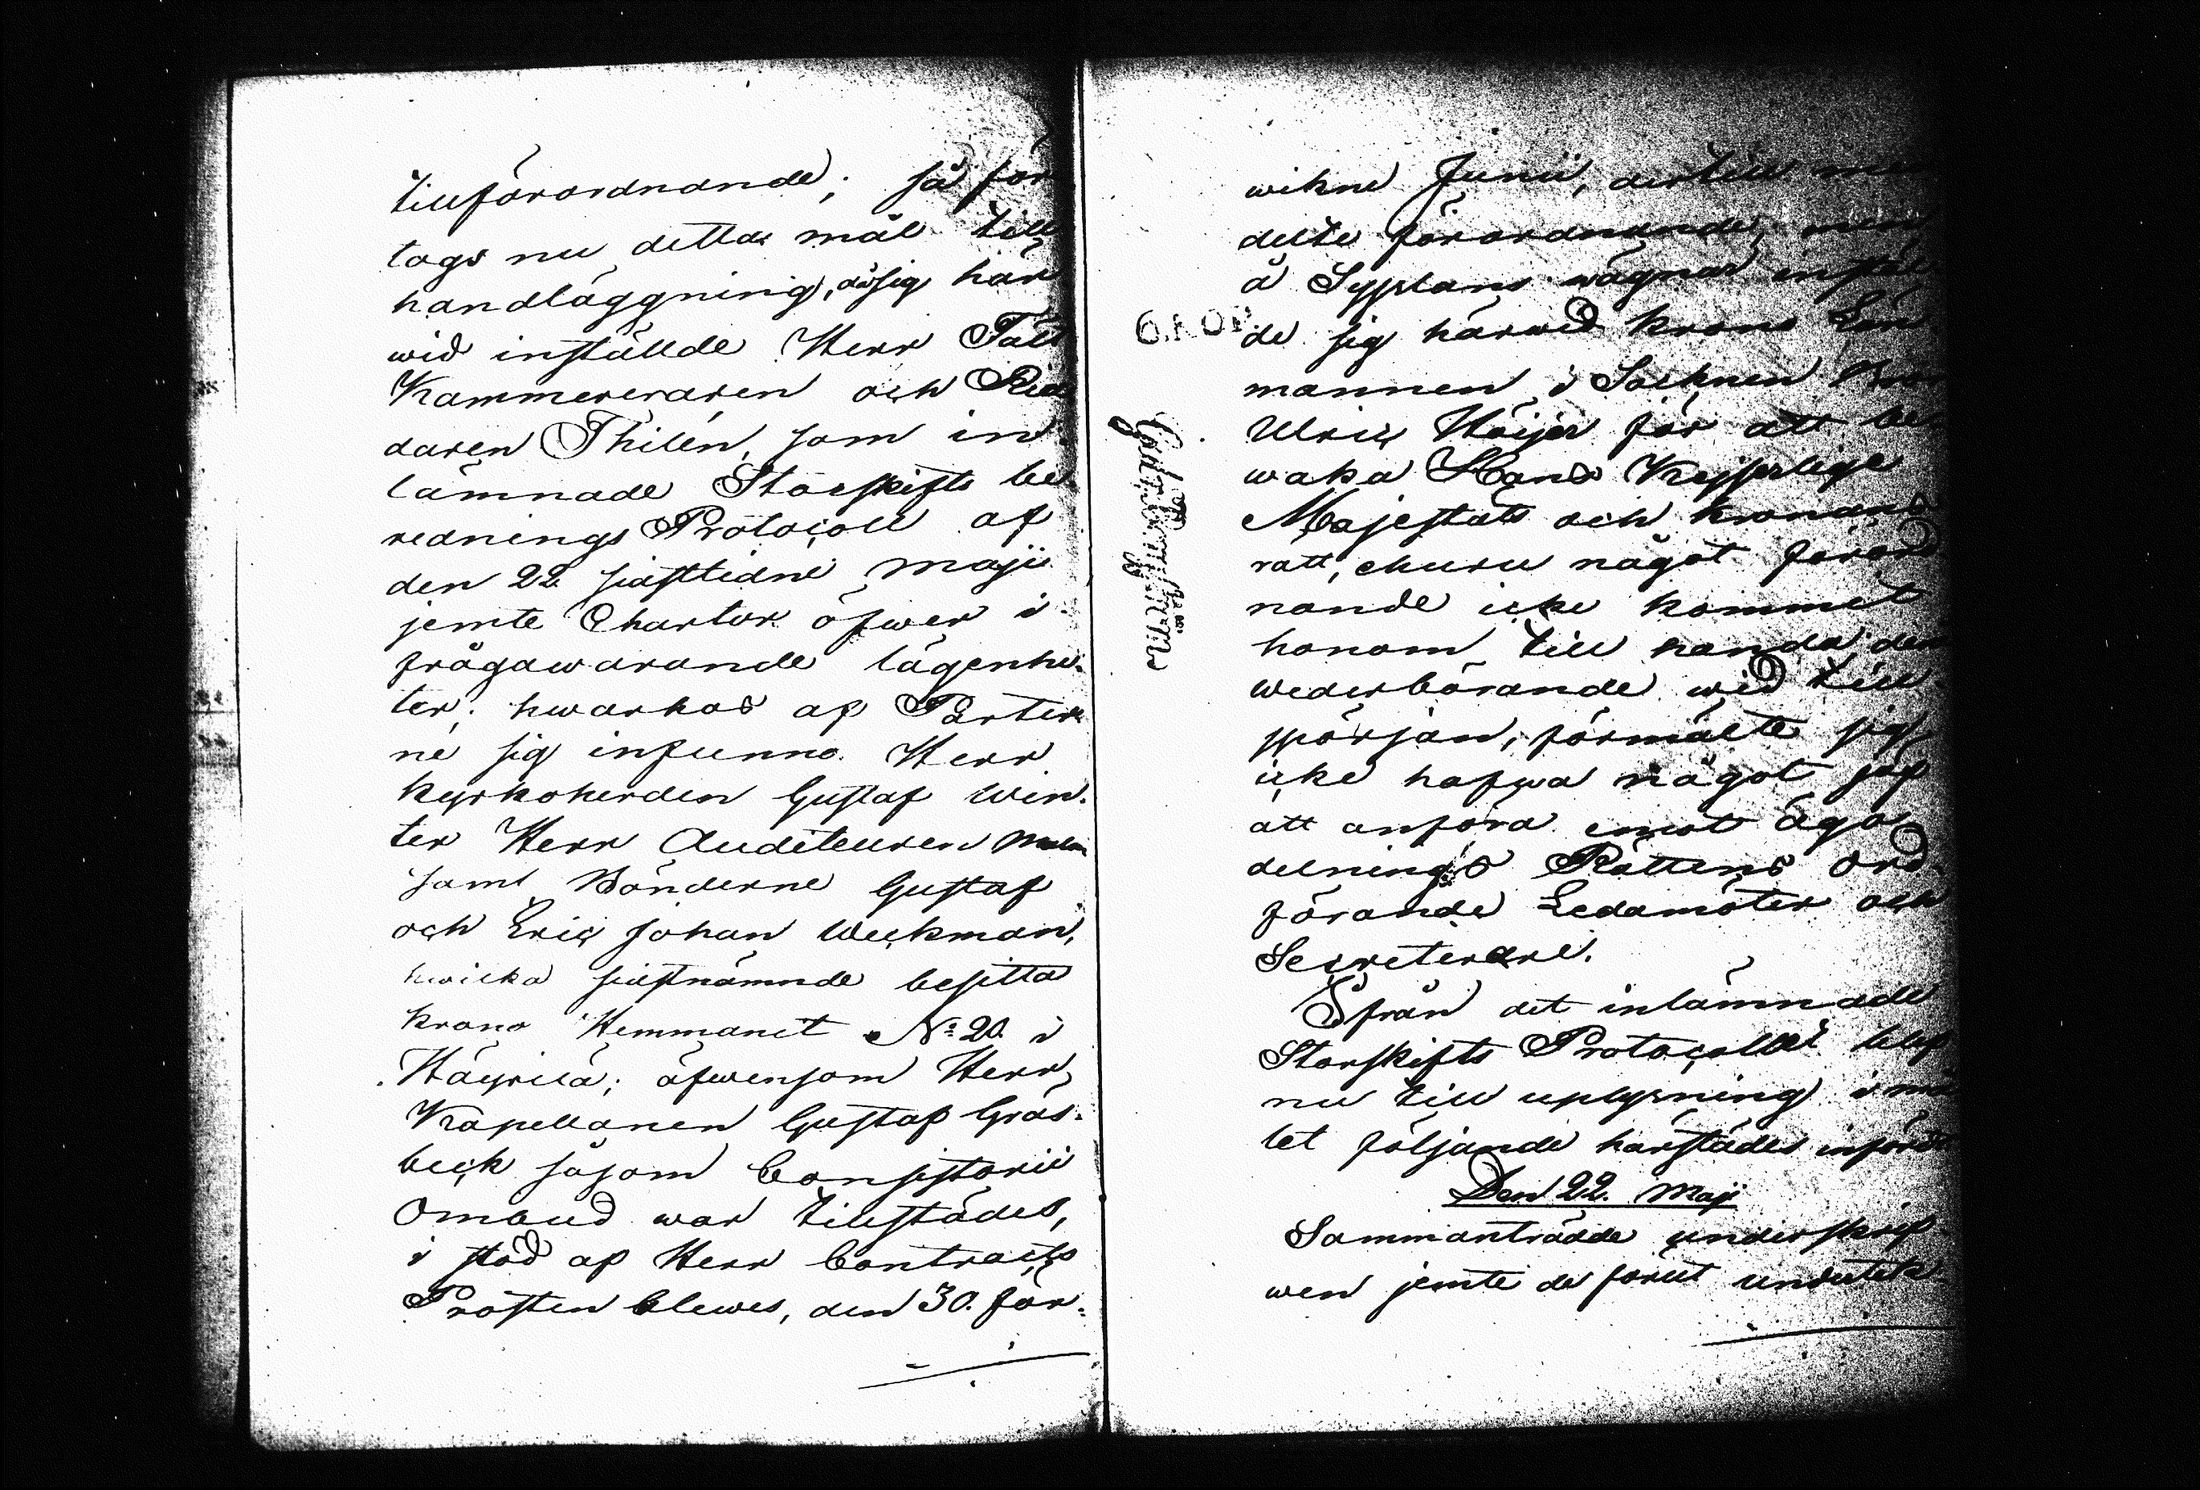 tillförordnande; så för
togs nu detta mål till
handläggning, då sig här
wid instälde Herr Fält
Kammereraren och Rid
daren Thilén, som in
lämnade Storskifts be
rednings Protocoll af
den 22 sistledne Maji
jemte Chartor öfwer i
frågawarande lägenhe-
ter; hwarhos af Parter
ne sig infunno Herr
kyrkoherden Gustaf Win-
ter Herr Auditeuren
samt Bönderne Gustaf
och Eric Johan Weckman,
hwilka sistnämnde besitta
krono Hemmanet No 20 i
Häyrilä; äfwensom Herr
Kapellanen Gustaf Gräs-
beck såsom Consistorii
Ombud war tillstädes,
i stöd af Herr Contracts
Prosten Clewes, den 30 för-
wikne Junii, dertill med
delte förordnande; men
å Sysslans wägnar instäl
de sig härwid krono Län
mannen i Socknen
Ulric Höijer för att be
waka Hans Kejserlige
Majestäts och kronans
rätt, churu något förord
nande icke kommit
honom till handa; de
wederbörande wid till
spörjan, förmälte sig
icke hafwa något jäf
att anföra emot Ägo
delnings Rättens Ord
förande Ledamöter och
Secreterare.
Ifrån det inlämnade
Storskifts Protocollet blef
nu till uplysning i må
let följande härstädes infördt
Den 22 Maji
Sammanträdde underskrif
wen jemte de förut